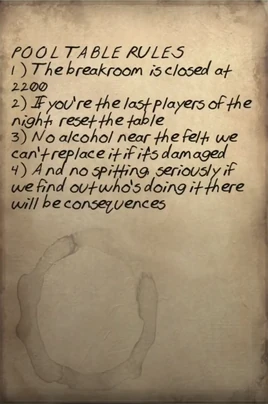 POOL TABLE RULES
1) The breakroom is closed at
2200
2) If you're the last players of the
night, reset the table
3) No alcohol near the felt, we
can't replace it if it's damaged
4) And no spitting, seriously if
we find out who's doing it there
will be consequences